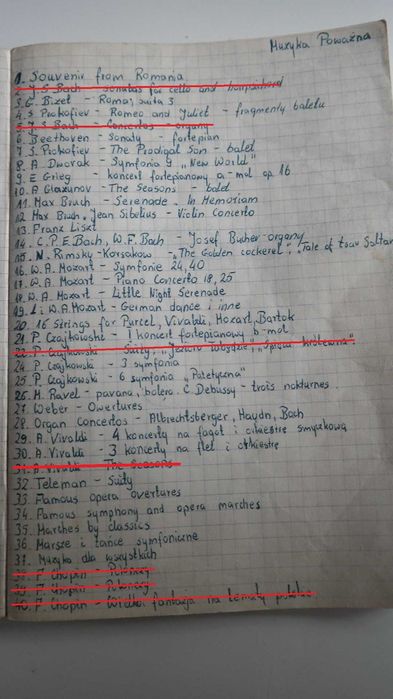 Muzyka Poważna
1. Souvenir from Romania
2. J.S. Bach - Sonatas for cello and harpsichord
3. G. Bizet - Roma, suita 3
4. S. Prokofiev - Romeo and Juliet - fragmenty baletu
5. J.S. Bach - Concertos - organy
6. Beethoven - Sonaty - fortepian
7. S. Prokofiev - The Prodigal Son - balet
8. A. Dworak - Symfonia 9 „New World"
9. E. Grieg - koncert fortepianowy a-mol op. 16
10. A. Glazunov - The Seasons - balet
11. Max Bruch - Serenade. In Memoriam
12. Max Bruch, Jean Sibelius - Violin Concerto
13. Franz Liszt
14. C.P.E. Bach, W.F. Bach - Josef Bucher - organy
15. N. Rimsky-Korsakow - „The Golden cockerel", „Tale of tsar Saltan
16. W.A. Mozart - Symfonie 24, 40
17. W.A. Mozart - Piano Concerto 18, 25
18. W.A. Mozart - Little Night Serenade
19. L. i W.A. Mozart - German dance i inne
20. 16 Strings for Purcel, Vivaldi, Mozart, Bartok
21. P. Czajkowski - I koncert fortepianowy b-mol
P. Czajkowski - Suity, „Jezioro łabędzie", „Śpiąca królewna"
24. P. Czajkowski - 3 symfonia
25. P. Czajkowski - 6 symfonia „Patetyczna"
26. M. Ravel - pavana, bolero. C. Debussy - trois nokturnes
27. Weber - Owertures
28. Organ Concertos - Albrechtsberger, Haydn, Bach
29. A. Vivaldi - 4 koncerty na fagot i orkiestrę smyczkową
30. A. Vivaldi - 3 koncerty na flet i orkiestrę
31. A. Vivaldi - The Seasons
32. Teleman - Suity
33. Famous opera overtures
34. Famous symphony and opera marches
35. Marches by classics
36. Marsze i tańce symfoniczne
37. Muzyka dla wszystkich
38. F. Chopin - Polonezy
39. F. Chopin - Polonezy
40. F. Chopin - Wielka fantazja na tematy polskie